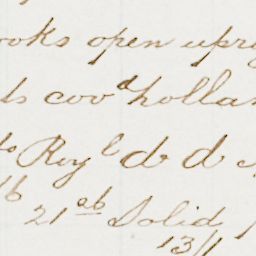 ooks open upr
ds cov^d hollan
do Roy^l d d
16
21 ab Solid
13/1